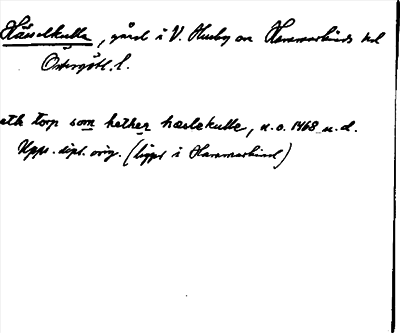 Hässelkulla, gård i V. Husby sn Hammarkinds hd
Östergötl. l.
eth torp som hether hæslekulle, u.o. 1468 u.d.
Upps. dipl. orig. (ligger i Hammarkind)